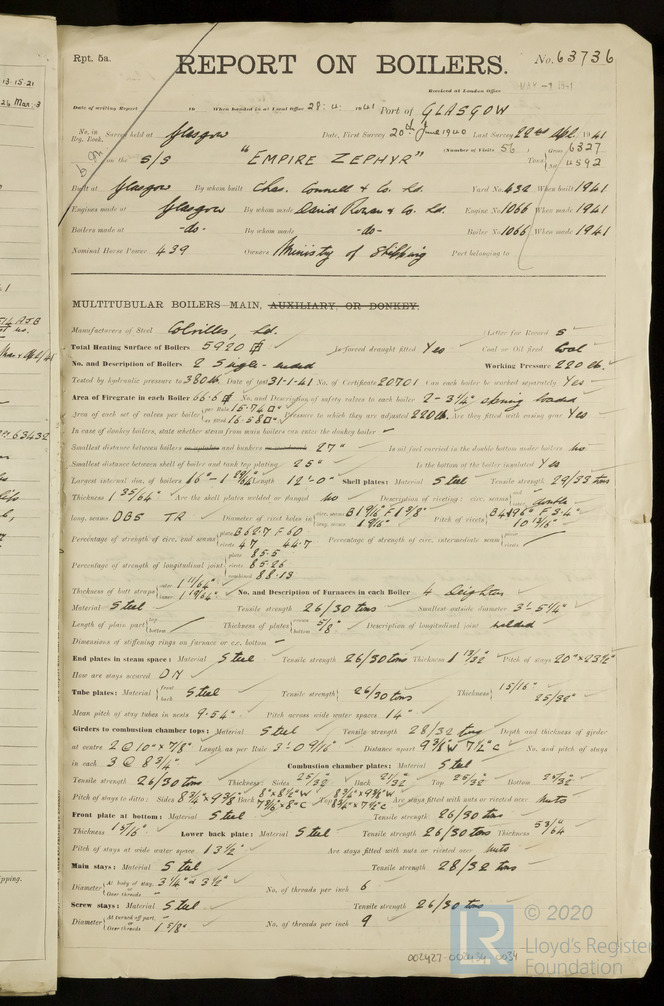 Rpt. 5a.
REPORT ON BOILERS.
No. 63736
Received at London Office
MAY -7 1941
Date of writing Report 19 When handed in at Local Office 28.4.1941 Port of GLASGOW
No. in Reg. Book. Survey held at Glasgow Date, First Survey 20th June 1940 Last Survey 22nd Apl. 1941
(Number of Visits 56) Gross 6327
on the S/S "EMPIRE ZEPHYR" Tons Net 4592
Built at Glasgow By whom built Chas. Connell & Co. Ld. Yard No. 432 When built 1941
Engines made at Glasgow By whom made David Rowan & Co. Ld. Engine No. 1066 When made 1941
Boilers made at -do- By whom made -do- Boiler No. 1066 When made 1941
Nominal Horse Power 439 Owners Ministry of Shipping Port belonging to
MULTITUBULAR BOILERS—MAIN, AUXILIARY, OR DONKEY.
Manufacturers of Steel Colvilles, Ld. (Letter for Record S
Total Heating Surface of Boilers 5920 Is forced draught fitted Yes Coal or Oil fired Coal
No. and Description of Boilers 2 Single-ended Working Pressure 220 lb.
Tested by hydraulic pressure to 380 lb. Date of test 31-1-41 No. of Certificate 20701 Can each boiler be worked separately Yes
Area of Firegrate in each Boiler 66.6 No. and Description of safety valves to each boiler 2 - 3¼" spring loaded
Area of each set of valves per boiler per Rule 15.74 as fitted 16.58 Pressure to which they are adjusted 220 lb. Are they fitted with easing gear Yes
In case of donkey boilers, state whether steam from main boilers can enter the donkey boiler -
Smallest distance between boilers or uptakes and bunkers 27" Is oil fuel carried in the double bottom under boilers No
Smallest distance between shell of boiler and tank top plating 25" Is the bottom of the boiler insulated Yes
Largest internal dia. of boilers Length 12'-0" Shell plates: Material Steel Tensile strength 29/33 tons
Thickness 1 35/64" Are the shell plates welded or flanged No Description of riveting: circ. seams double
long. seams DBS TR Diameter of rivet holes in circ. seams long. seams 1 9/16" Pitch of rivets 10 13/16"
Percentage of strength of circ. end seams plate B 62.7 F 60 rivets 47 44.7 Percentage of strength of circ. intermediate seam plate rivets
Percentage of strength of longitudinal joint plate 85.5 rivets 85.26 combined 88.13
Thickness of butt straps outer 1 11/64" inner 1 19/64" No. and Description of Furnaces in each Boiler 4 Deighton
Material Steel Tensile strength 26/30 tons Smallest outside diameter 3'-5¼"
Length of plain part top bottom Thickness of plates crown bottom 5/8" Description of longitudinal joint welded
Dimensions of stiffening rings on furnace or c.c. bottom -
End plates in steam space: Material Steel Tensile strength 26/30 tons Thickness 1 13/32" Pitch of stays 20" x 23½"
How are stays secured D N
Tube plates: Material front back Steel Tensile strength 26/30 tons Thickness 15/16" 25/32"
Mean pitch of stay tubes in nests 9.54" Pitch across wide water spaces 14"
Girders to combustion chamber tops: Material Steel Tensile strength 28/32 tons Depth and thickness of girder
at centre 2 @ 10" x 7/8" Length as per Rule 3'-0 9/16" Distance apart 9 3/8" W 7½" C No. and pitch of stays
in each 3 @ 8¾" Combustion chamber plates: Material Steel
Tensile strength 26/30 tons Thickness: Sides 25/32" Back 21/32" Top 25/32" Bottom
Pitch of stays to ditto: Sides 8¾" x 9 3/8" Back Top Are stays fitted with nuts or riveted over Nuts
Front plate at bottom: Material Steel Tensile strength 26/30 tons
Thickness 15/16" Lower back plate: Material Steel Tensile strength 26/30 tons Thickness 53/64"
Pitch of stays at wide water space 13½" Are stays fitted with nuts or riveted over Nuts
Main stays: Material Steel Tensile strength 28/32 tons
Diameter At body of stay, or Over threads 3¼" & 3½" No. of threads per inch 6
Screw stays: Material Steel Tensile strength 26/30 tons
Diameter At turned off part, or Over threads 1 5/8" No. of threads per inch 9
002427-002434-0034
© 2020
Lloyd's Register
Foundation